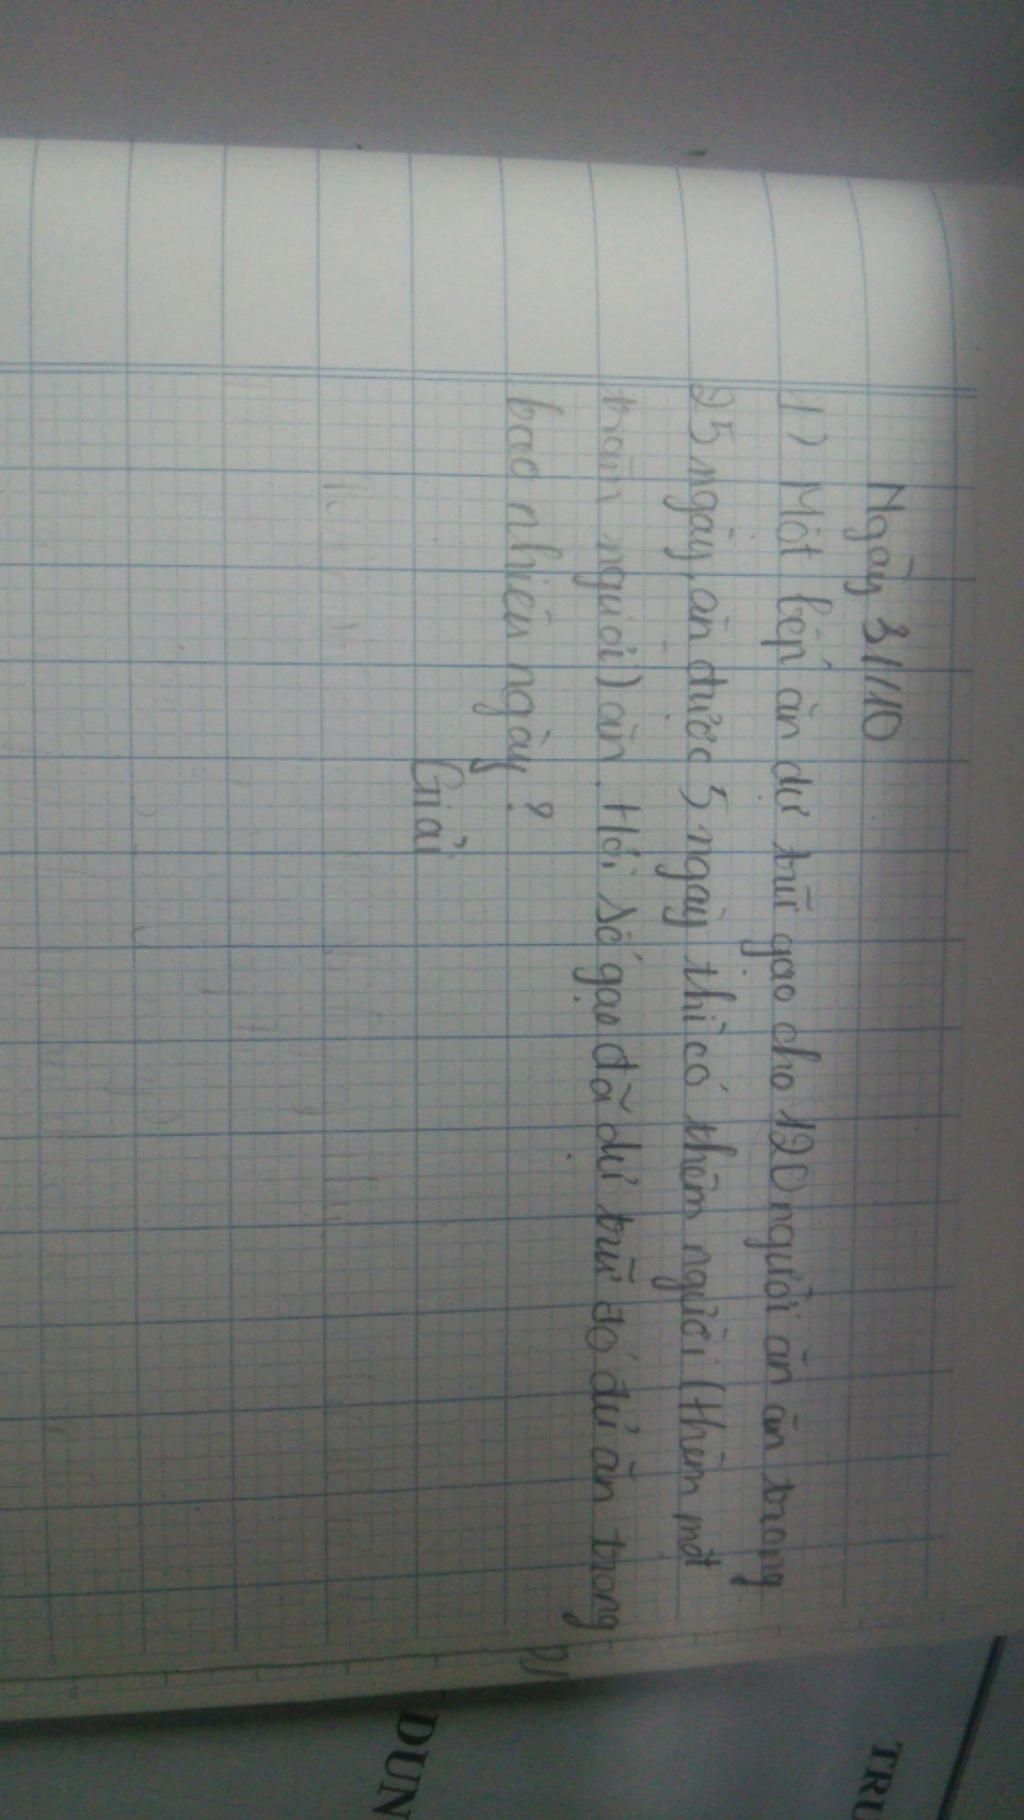 Ngày 31/10
1) Một bếp ăn dự trữ gạo cho 120 người ăn ăn trong
25 ngày, ăn được 5 ngày thì có thêm người (thêm một
trăm người) ăn. Hỏi số gạo đã dự trữ đó đủ ăn trong
bao nhiêu ngày?
Giải
TRU
DUN